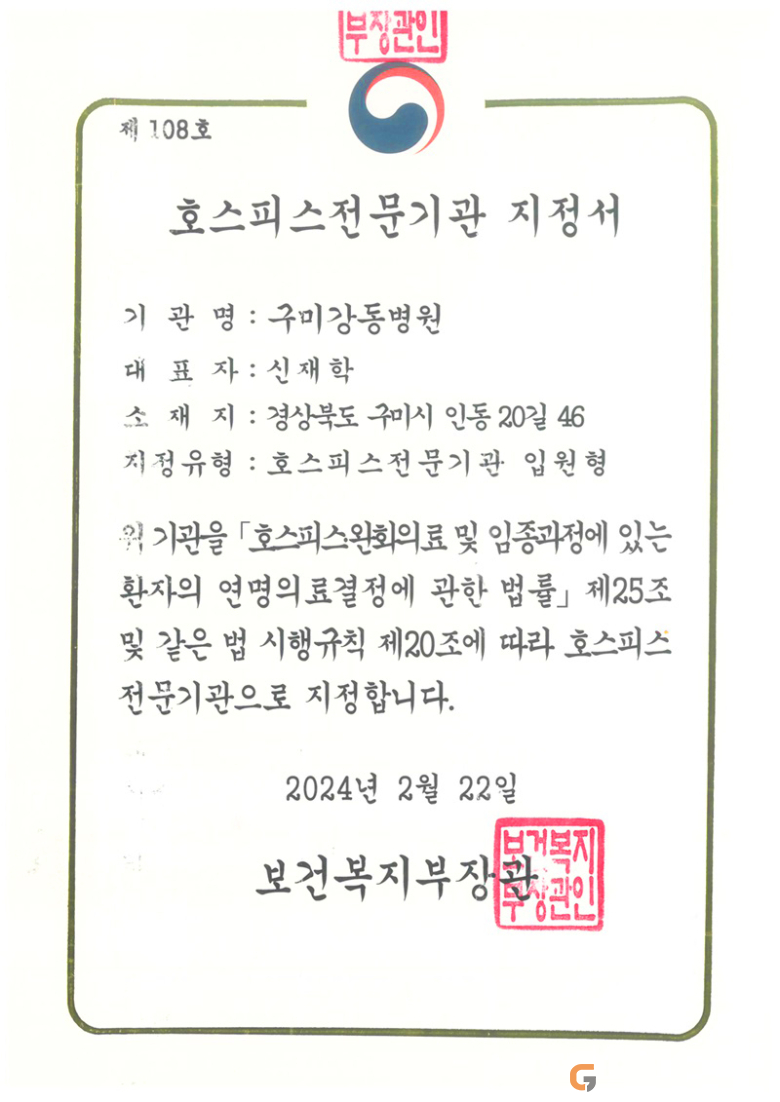 부장관인
제 108호
호스피스전문기관 지정서
기 관 명 : 구미강동병원
대 표 자 : 신재학
소 재 지 : 경상북도 구미시 인동20길 46
지정유형 : 호스피스전문기관 입원형
위 기관을 「호스피스·완화의료 및 임종과정에 있는
환자의 연명의료결정에 관한 법률」 제25조
및 같은 법 시행규칙 제20조에 따라 호스피스
전문기관으로 지정합니다.
2024년 2월 22일
보건복지부장관
보건복지
부장관인